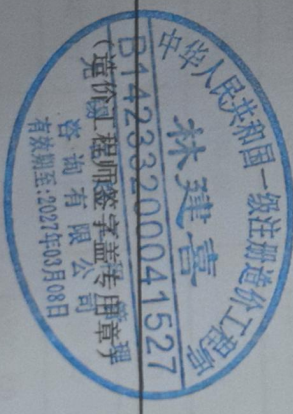 中华人民共和国一级注册造价工程师
林建喜
B14233200041527
(造价工程师签字盖专用章)
咨询有限公司
有效期至:2027年03月08日